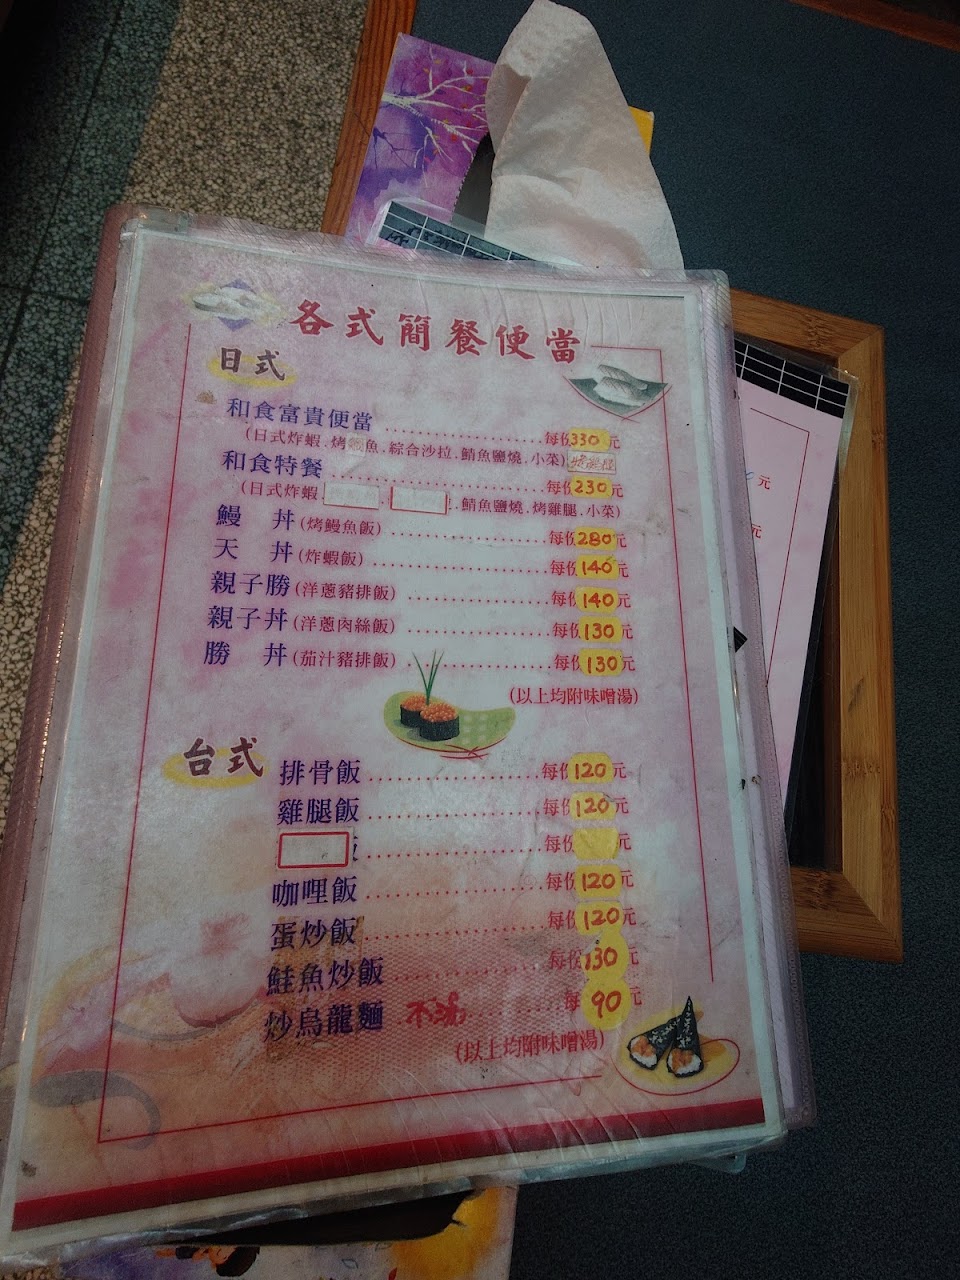 各式簡餐便當
日式
和食富貴便當 每份330元
(日式炸蝦.烤鰻魚.綜合沙拉.鯖魚鹽燒.小菜)
和食特餐 每份230元
(日式炸蝦. .鯖魚鹽燒.烤雞腿.小菜)
鰻 丼(烤鰻魚飯) 每份280元
天 丼(炸蝦飯) 每份140元
親子勝(洋蔥豬排飯) 每份140元
親子丼(洋蔥肉絲飯) 每份130元
勝 丼(茄汁豬排飯) 每份130元
(以上均附味噌湯)
台式
排骨飯 每份120元
雞腿飯 每份120元
飯 每份 元
咖哩飯 每份120元
蛋炒飯 每份120元
鮭魚炒飯 每份130元
炒烏龍麵 不湯 每 90元
(以上均附味噌湯)
元
元